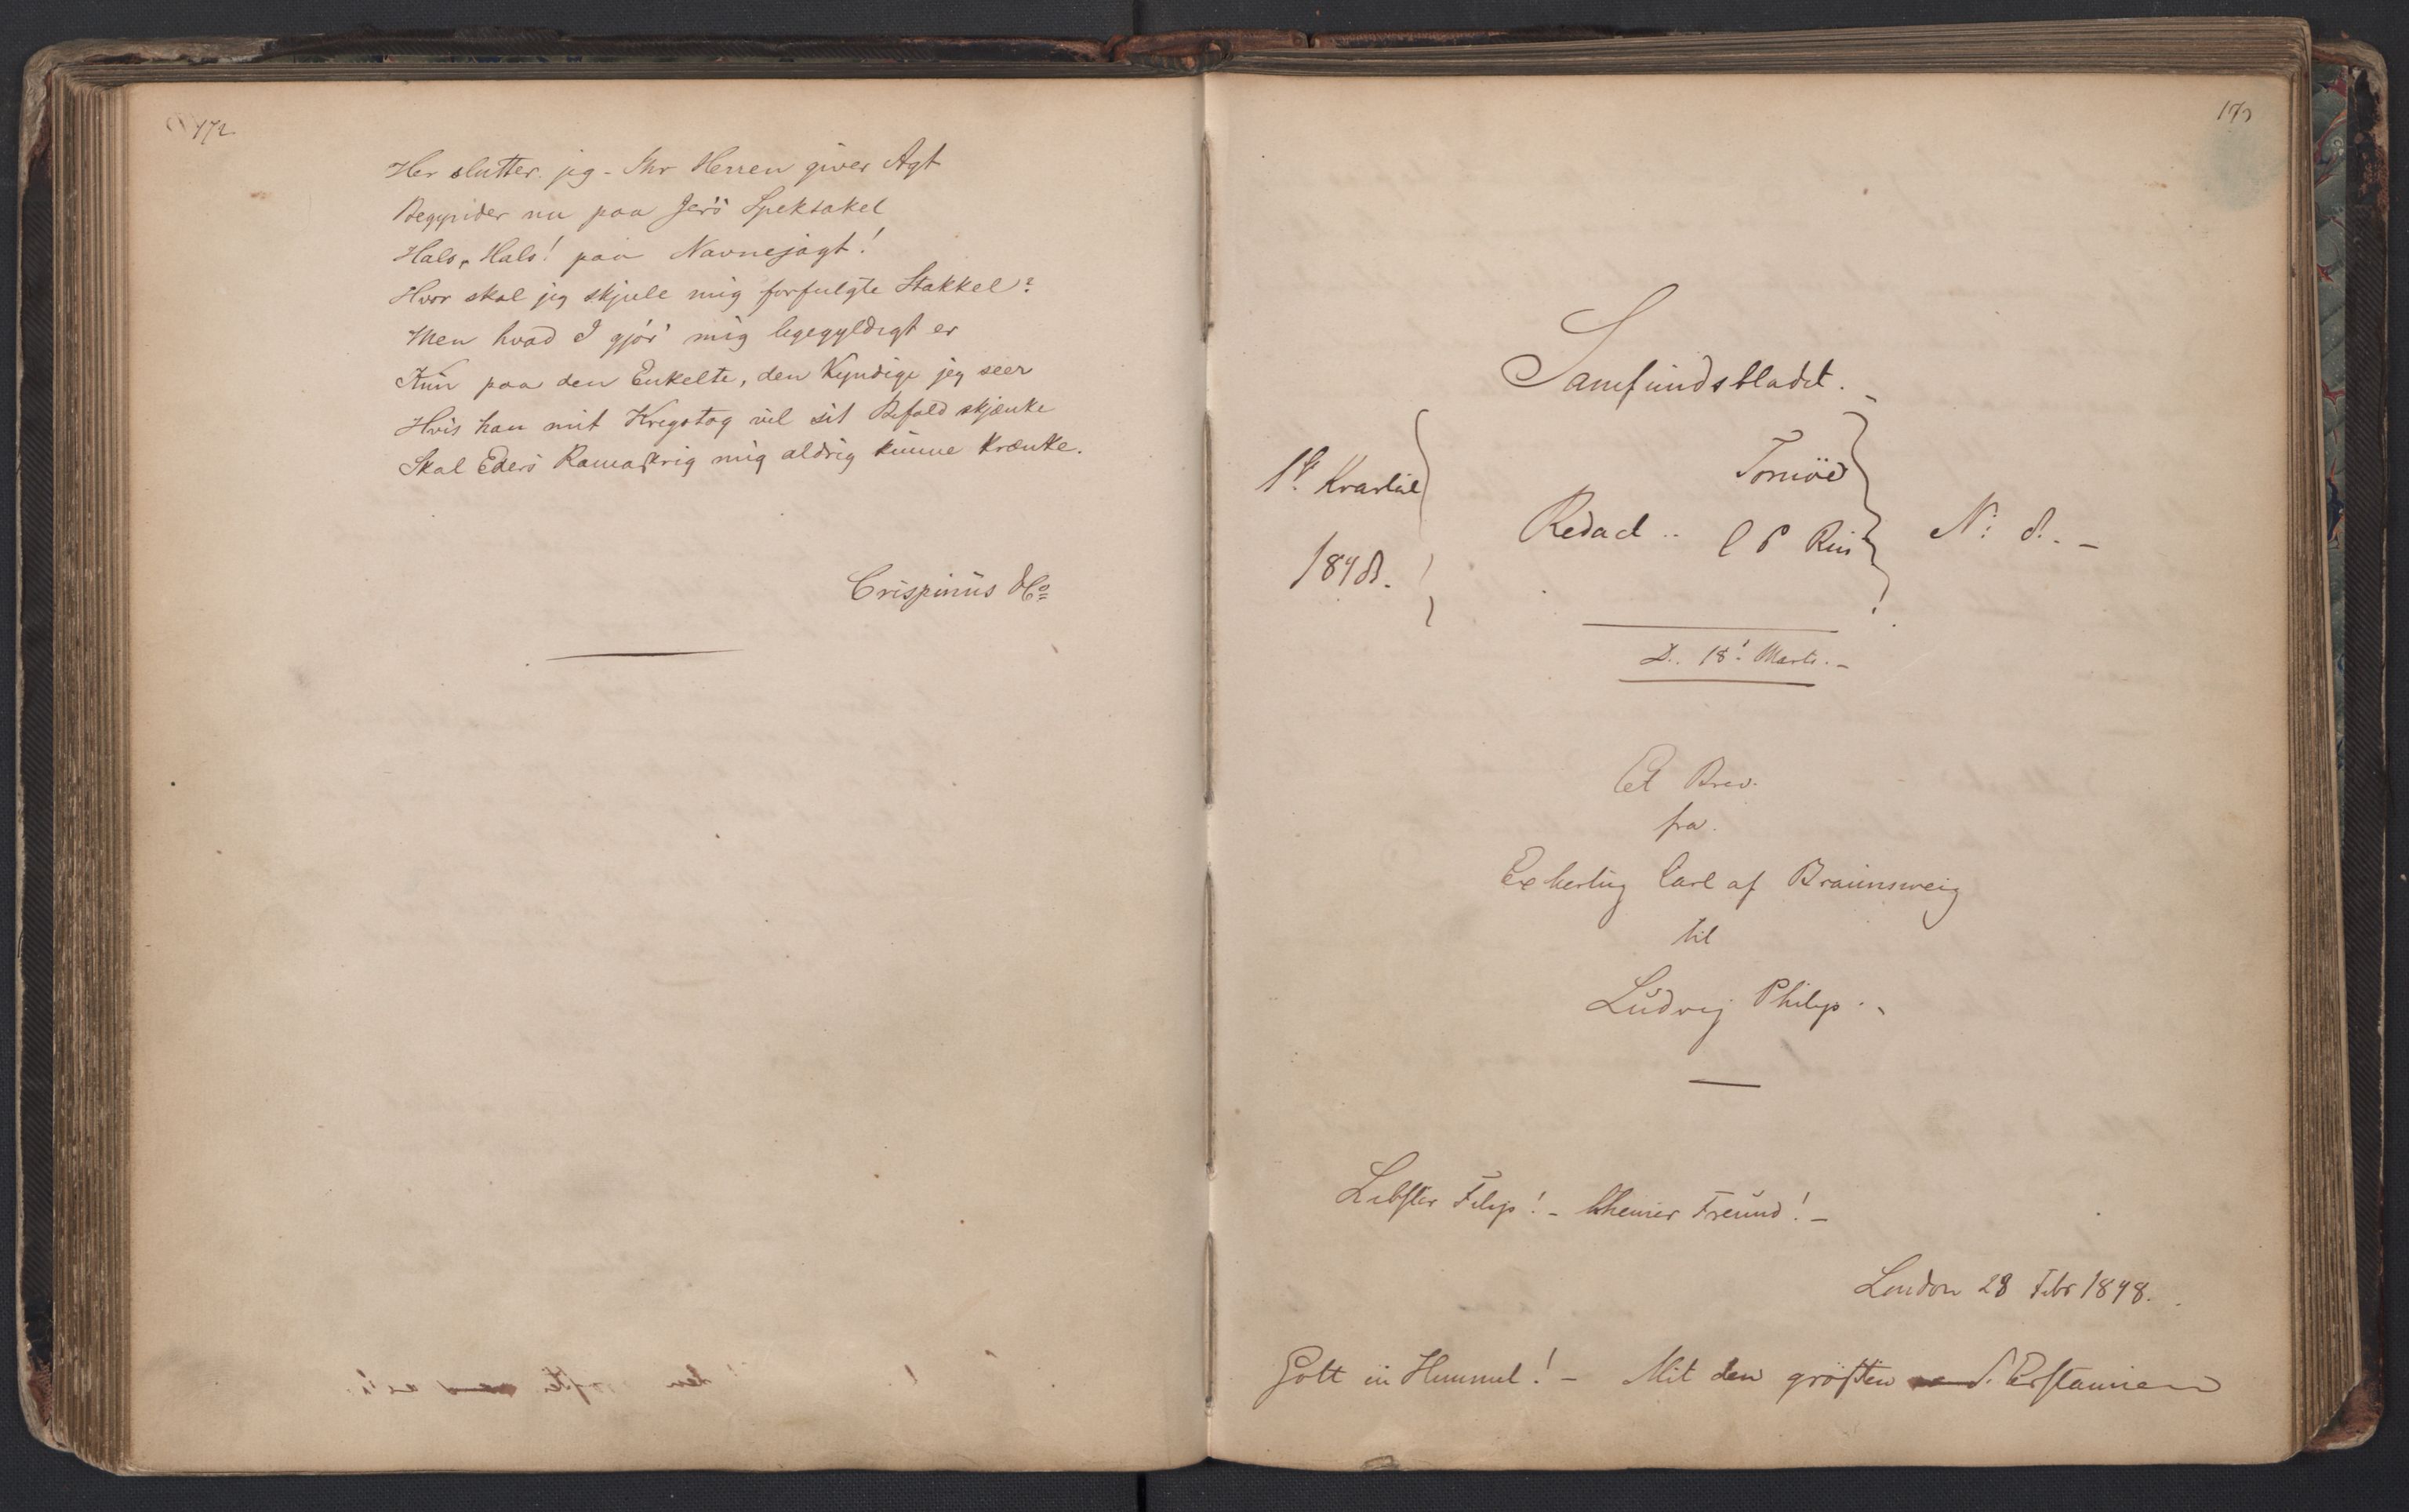 172
Her slutter jeg - Mr Herren giver Agt
Begynder nu paa Jers Spektakel
Hals, Hals! paa Navnejagt!
Hvor skal jeg skjule mig forfulgte Stakkel?
Men hvad I gjør mig ligegyldigt er
Kun paa den Enkelte, den Kyndige jeg seer
Hvis han mit Krigstog vil sit Bifald skjænke
Skal Eders Ramaskrig mig aldrig kunne krænke.
Crispinus & Co
173
Samfundsbladet.
1st Kvartal
1848.
Redact..
C P Riis
No: 8. -
D. 18. Marts. -
Et Brev.
fra.
Exhertug Carl af Braunsweig
til
Ludvig Philip.
Liebster Filip! - theurer Freund! -
London 28 Febr 1848.
Gott in Himmel! - Mit den größten Erstaunen